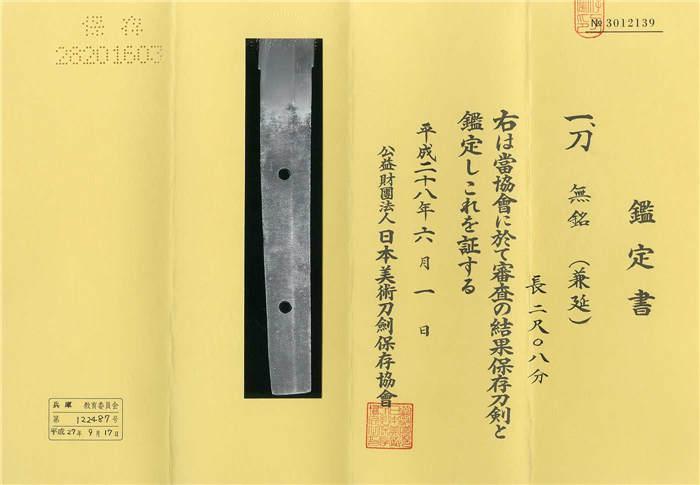 № 3012139
鑑定書
一、刀 無銘（兼延）
長二尺〇八分
右は當協會に於て審査の結果保存刀剣と
鑑定しこれを証する
平成二十八年六月一日
公益財團法人日本美術刀劍保存協會
保存
28201603
兵庫 教育委員会
第 122487号
平成27年9月17日